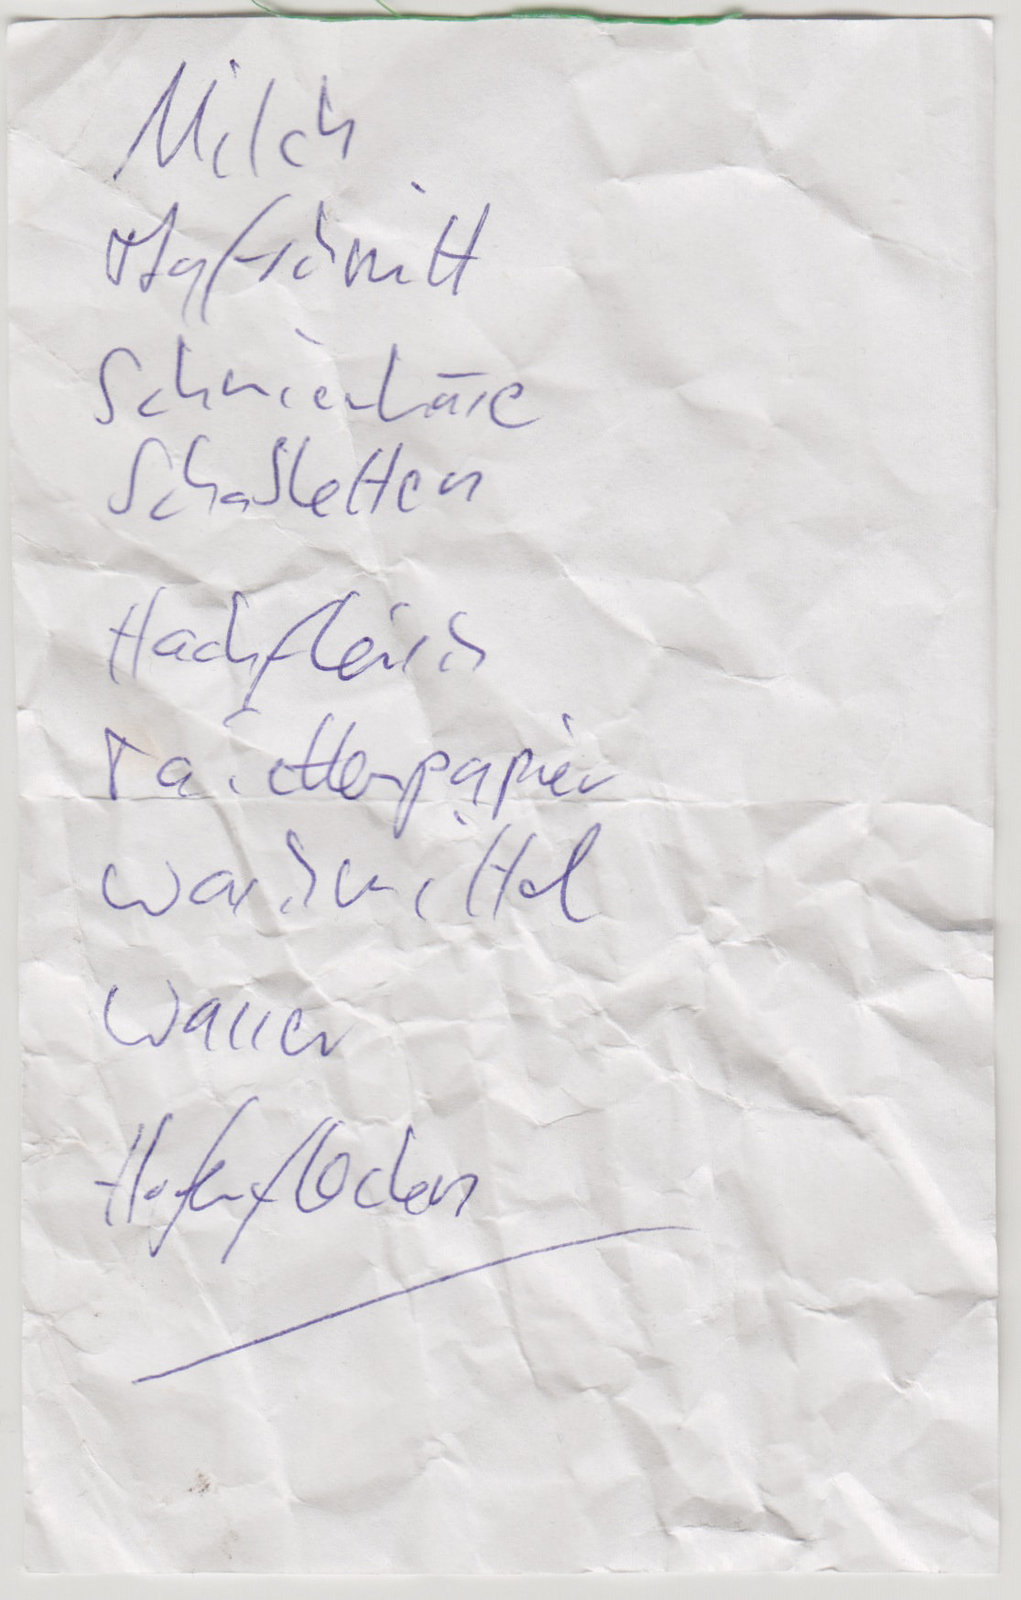 Milch
Aufschnitt
Schmierkäse
Schaletten
Hackfleisch
Toilettenpapier
Waschmittel
Wasser
Haferflocken